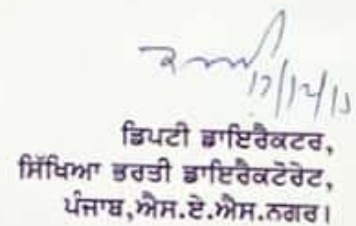 17/12/13
ਡਿਪਟੀ ਡਾਇਰੈਕਟਰ,
ਸਿੱਖਿਆ ਭਰਤੀ ਡਾਇਰੈਕਟੋਰੇਟ,
ਪੰਜਾਬ,ਐਸ.ਏ.ਐਸ.ਨਗਰ।